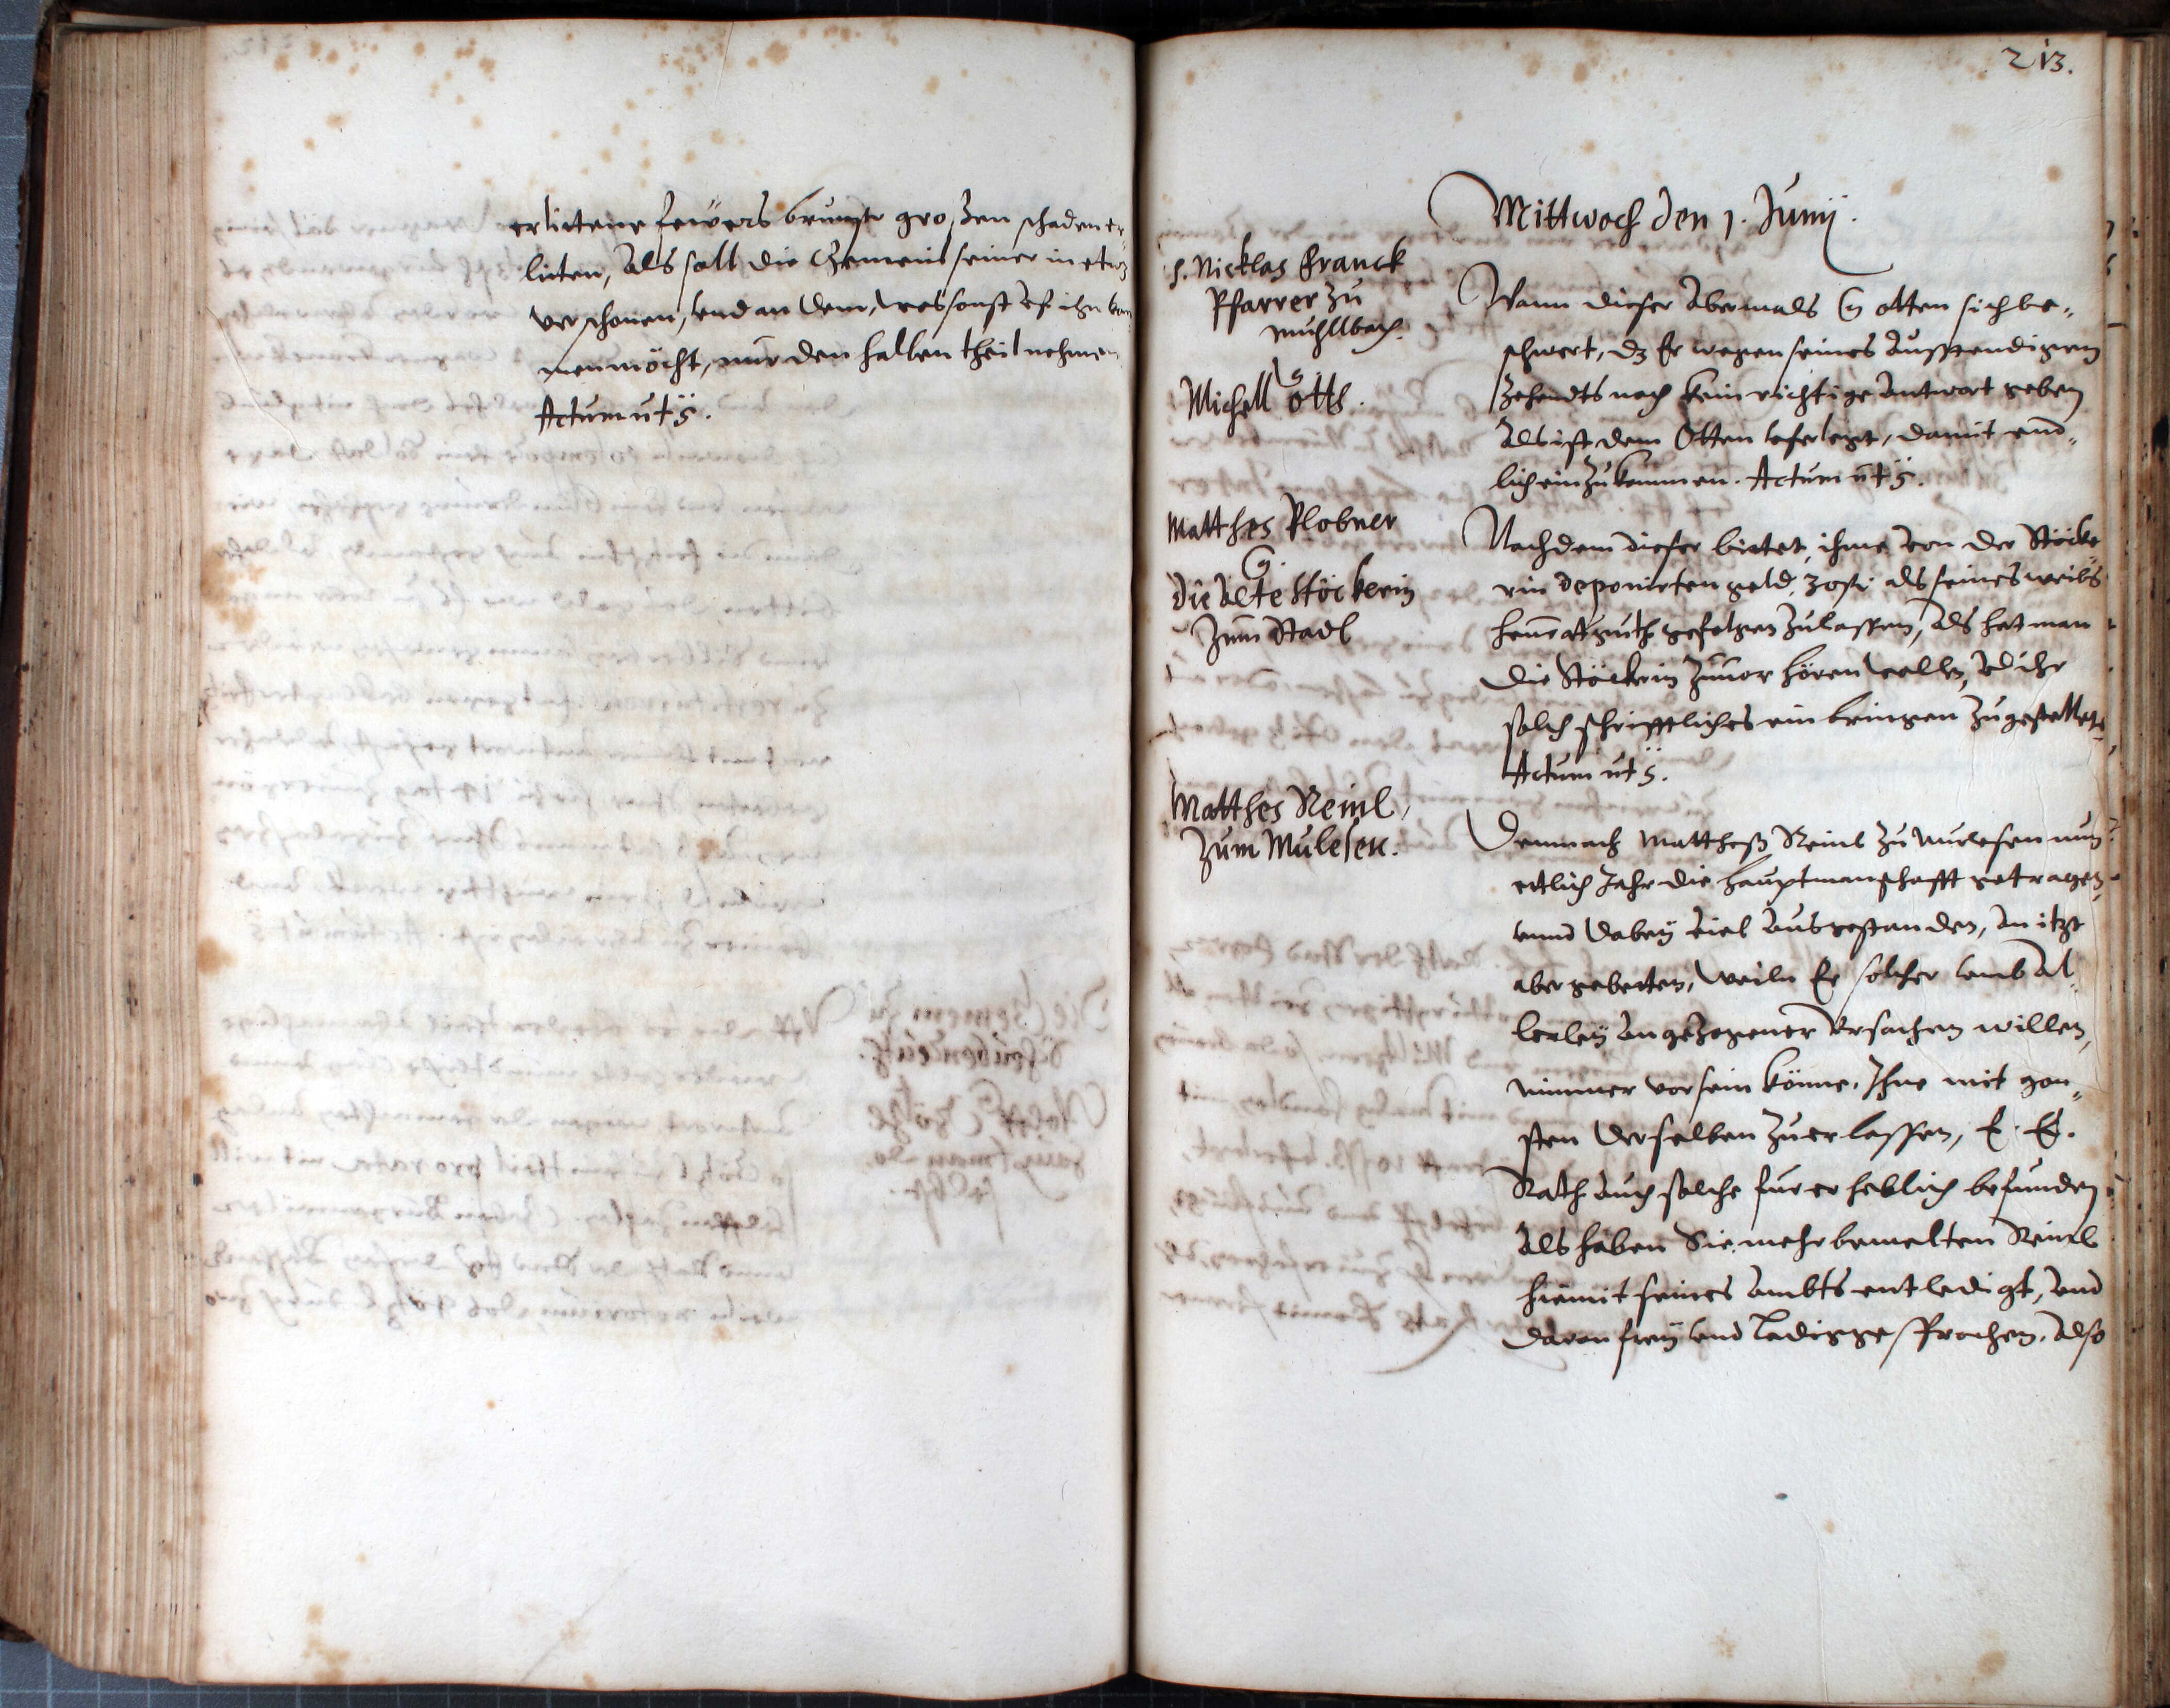 erlittene fewers brunste großen schaden er„
litten, Als soll die Gemeind seiner in etwz
verschonen, vnd an dem, was sonst vf ihn kom„
men möcht, nur den halben theil nehmen
Actum ut s.
213.
Mittwoch den 1. Junij.
h. Nicklas Franck
Pfarrer zu
Mühllbach.
G
Michell Otts.
Wann dieser abermals G Otten sich be„
schwert, dz Er wegen seines ausstendigen
Zehendts noch kein richtige Antwort geben
Als ist dem Otten befelegt, damit end„
lich einzukommen. Actum ut s.
Matthes Plobner
G.
die alte Stöckerin
zum Stadl
Nachdem dieser bittet, ihme von der Stöcke
rin deponirten geld, 30 fl. als seines weibs
heuratguth gefolgen zulassen, Als hat man
die Stöckerin zuuor hören wollen, vnd ihr
solch schrifftliches ein bringen zugestellet.
Actum ut s.
Matthes Reinl,
zum Mulesen.
Demnach Mattheß Reinl zu Mulesen nun
ettlich Jahr die hauptmanschafft getragen,
vnnd dabey viel ausgestanden, an itzt
aber gebetten, weiln Er solcher vmb al„
lerley angezogener Vrsachen willen,
nimmer vor sein könne, Ihne mit gon„
sten derselben zuerlassen, E. E.
Rath auch solche fur erheblich befunden
Als haben Sie mehrbemelten Reinl
hiemit seines Ambts entledigt, vnd
davon frey vnd ledig gesprochen, Also